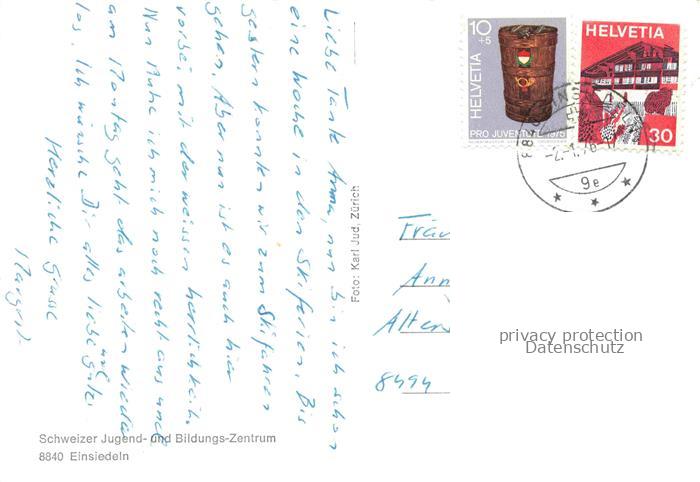 Liebe Tante Anna, nun bin ich schon
eine Woche in den Skiferien. Bis
gestern konnten wir zum Skifahren
gehen. Aber nun ist es auch hier
vorbei mit der weissen herrlichkeit.
Nun Ruhe ich mich noch recht aus und
am Montag geht das arbeiten wieder
los. Ich wünsche Dir alles liebe und gute
Herzliche Grüsse
Schweizer Jugend- und Bildungs-Zentrum
8840 Einsiedeln
Foto: Karl Jud, Zürich
10
+5
HELVETIA
PRO JUVENTUTE 1975
HELVETIA
30
-2.-1.76
9e
Fräu
Ann
8494
privacy protection
Datenschutz